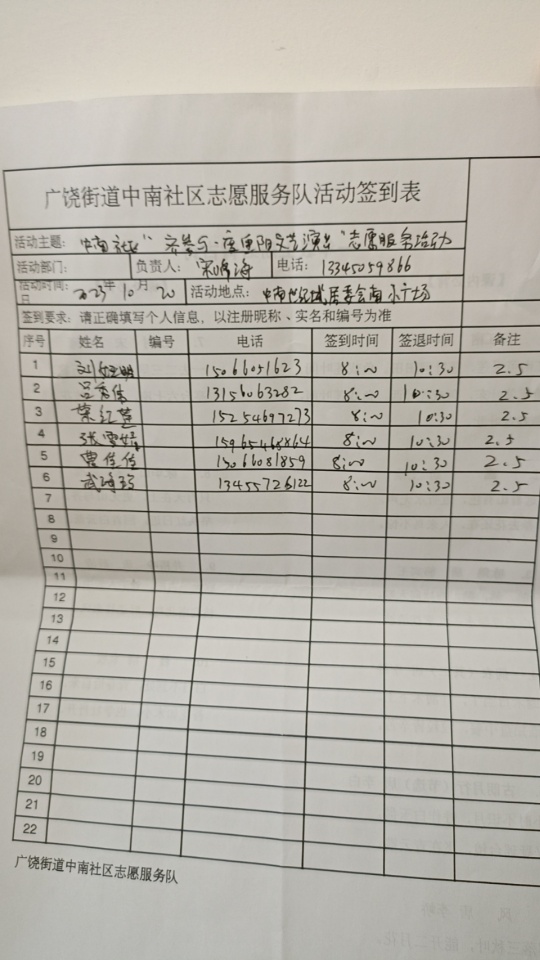 广饶街道中南社区志愿服务队活动签到表
活动主题: 中南社区" 重阳文艺演出"志愿服务活动
活动部门: 负责人: 宋 海 电话: 13345059866
活动时间: 2023年10月20日 活动地点: 中南世纪城居委会南小广场
签到要求: 请正确填写个人信息, 以注册昵称、实名和编号为准
序号 姓名 编号 电话 签到时间 签退时间 备注
1 刘 明 15066051623 8:00 10:30 2.5
2 吕 13156063282 8:00 10:30 2.5
3 荣红燕 15254697273 8:00 10:30 2.5
4 张雪 15965468864 8:00 10:30 2.5
5 曹佳佳 15066081859 8:00 10:30 2.5
6 武 13455726122 8:00 10:30 2.5
7
8
9
10
11
12
13
14
15
16
17
18
19
20
21
22
广饶街道中南社区志愿服务队